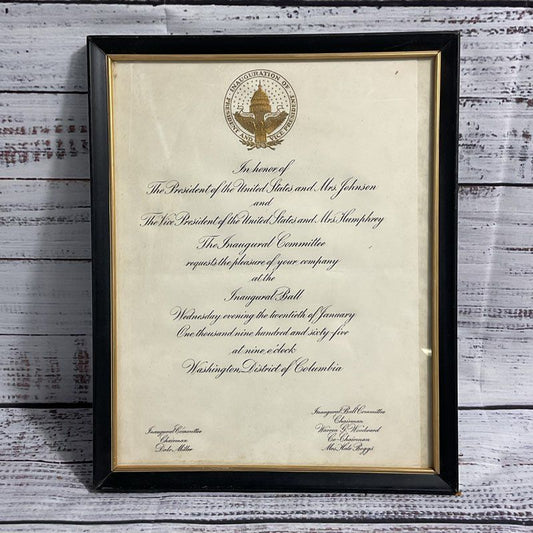 INAUGURATION OF PRESIDENT AND VICE PRESIDENT
In honor of
The President of the United States and Mrs. Johnson
and
The Vice President of the United States and Mrs. Humphrey
The Inaugural Committee
requests the pleasure of your company
at the
Inaugural Ball
Wednesday evening the twentieth of January
One thousand nine hundred and sixty-five
at nine o'clock
Washington, District of Columbia
Inaugural Committee
Chairman
Dale Miller
Inaugural Ball Committee
Chairman
Warren G. Woodward
Co-Chairman
Mrs. Hale Boggs